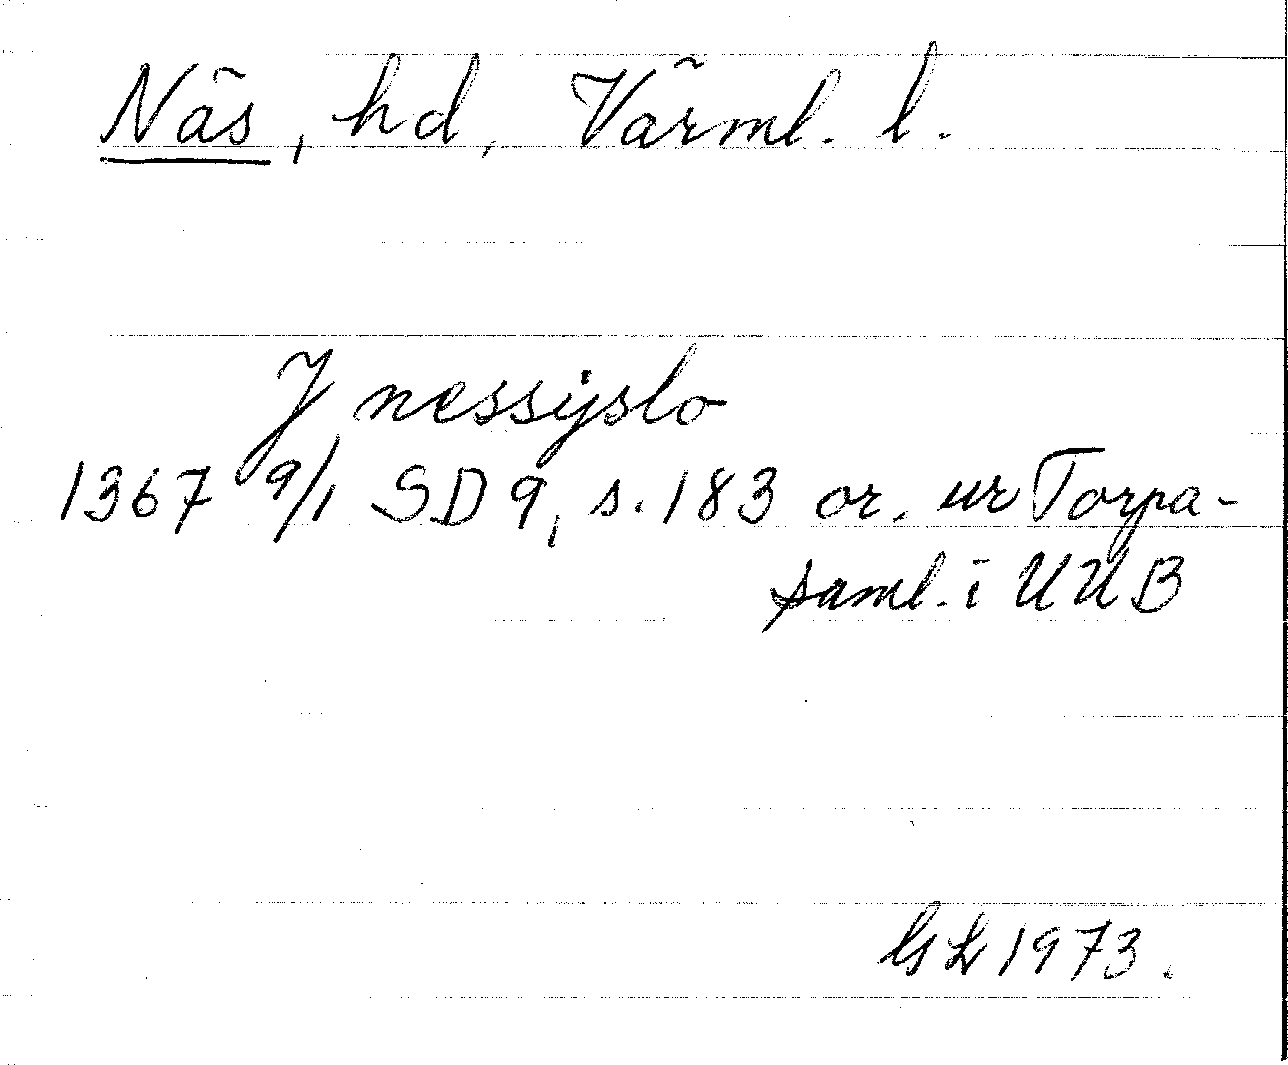 Näs, hd, Värml. l.
J nessyslo
1367 9/1 SD 9, s. 183 or. ur Torpa-
saml. i UUB
GL 1973.